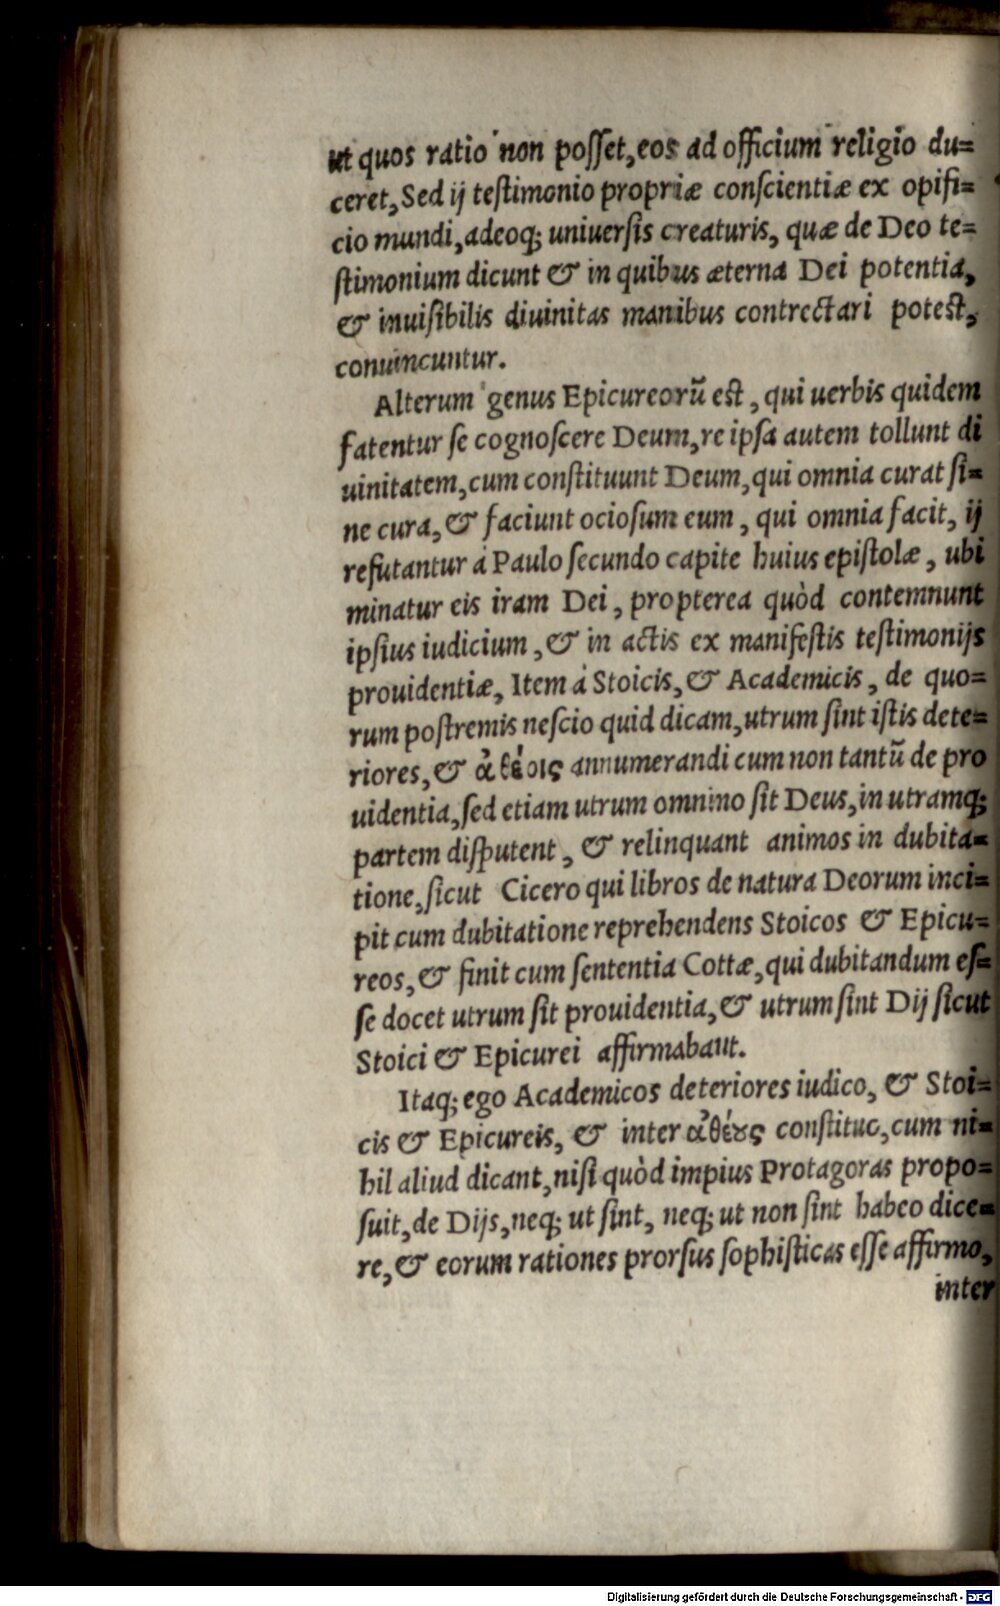 ut quos ratio non posſet, eos ad officium religio du=
ceret, Sed ij teſtimonio propriæ conſcientiæ ex opifi=
cio mundi, adeoq; uniuerſis creaturis, quæ de Deo te=
ſtimonium dicunt & in quibus æterna Dei potentia,
& inuiſibilis diuinitas manibus contrectari potest,
conuincuntur.
Alterum genus Epicureorū est, qui uerbis quidem
fatentur ſe cognoſcere Deum, re ipſa autem tollunt di
uinitatem, cum conſtituunt Deum, qui omnia curat ſi=
ne cura, & faciunt ocioſum eum, qui omnia facit, ij
refutantur á Paulo ſecundo capite huius epiſtolæ, ubi
minatur eis iram Dei, propterea quòd contemnunt
ipſius iudicium, & in actis ex manifeſtis teſtimonijs
prouidentiæ, Item á Stoicis, & Academicis, de quo=
rum poſtremis neſcio quid dicam, utrum ſint iſtis dete=
riores, & ἀθέοις annumerandi cum non tantū de pro
uidentia, ſed etiam utrum omnino ſit Deus, in utramq;
partem diſputent, & relinquant animos in dubita=
tione, ſicut Cicero qui libros de natura Deorum inci=
pit cum dubitatione reprehendens Stoicos & Epicu=
reos, & finit cum ſententia Cottæ, qui dubitandum eſ=
ſe docet utrum ſit prouidentia, & utrum ſint Dij ſicut
Stoici & Epicurei affirmabaut.
Itaq; ego Academicos deteriores iudico, & Stoi=
cis & Epicureis, & inter ἀθέȣς conſtituo, cum ni=
hil aliud dicant, niſi quòd impius Protagoras propo=
ſuit, de Dijs, neq; ut ſint, neq; ut non ſint habeo dice=
re, & eorum rationes prorſus ſophiſticas eſſe affirmo,
inter
Digitalisierung gefördert durch die Deutsche Forschungsgemeinschaft - DFG